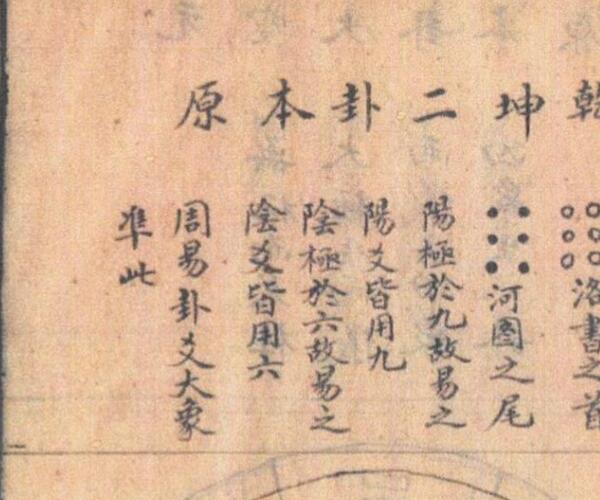 乾坤二卦本原
洛書之首
河圖之尾
陽極於九故易之
陽爻皆用九
陰極於六故易之
陰爻皆用六
周易卦爻大象
準此